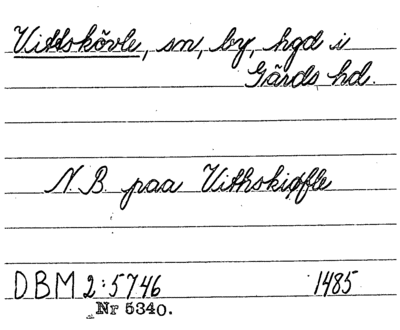 Vittskövle, sn, by, hgd i
Gärds hd.
N. B. paa Vithskiøfle
DBM 2:5746 1485
Nr 5340.